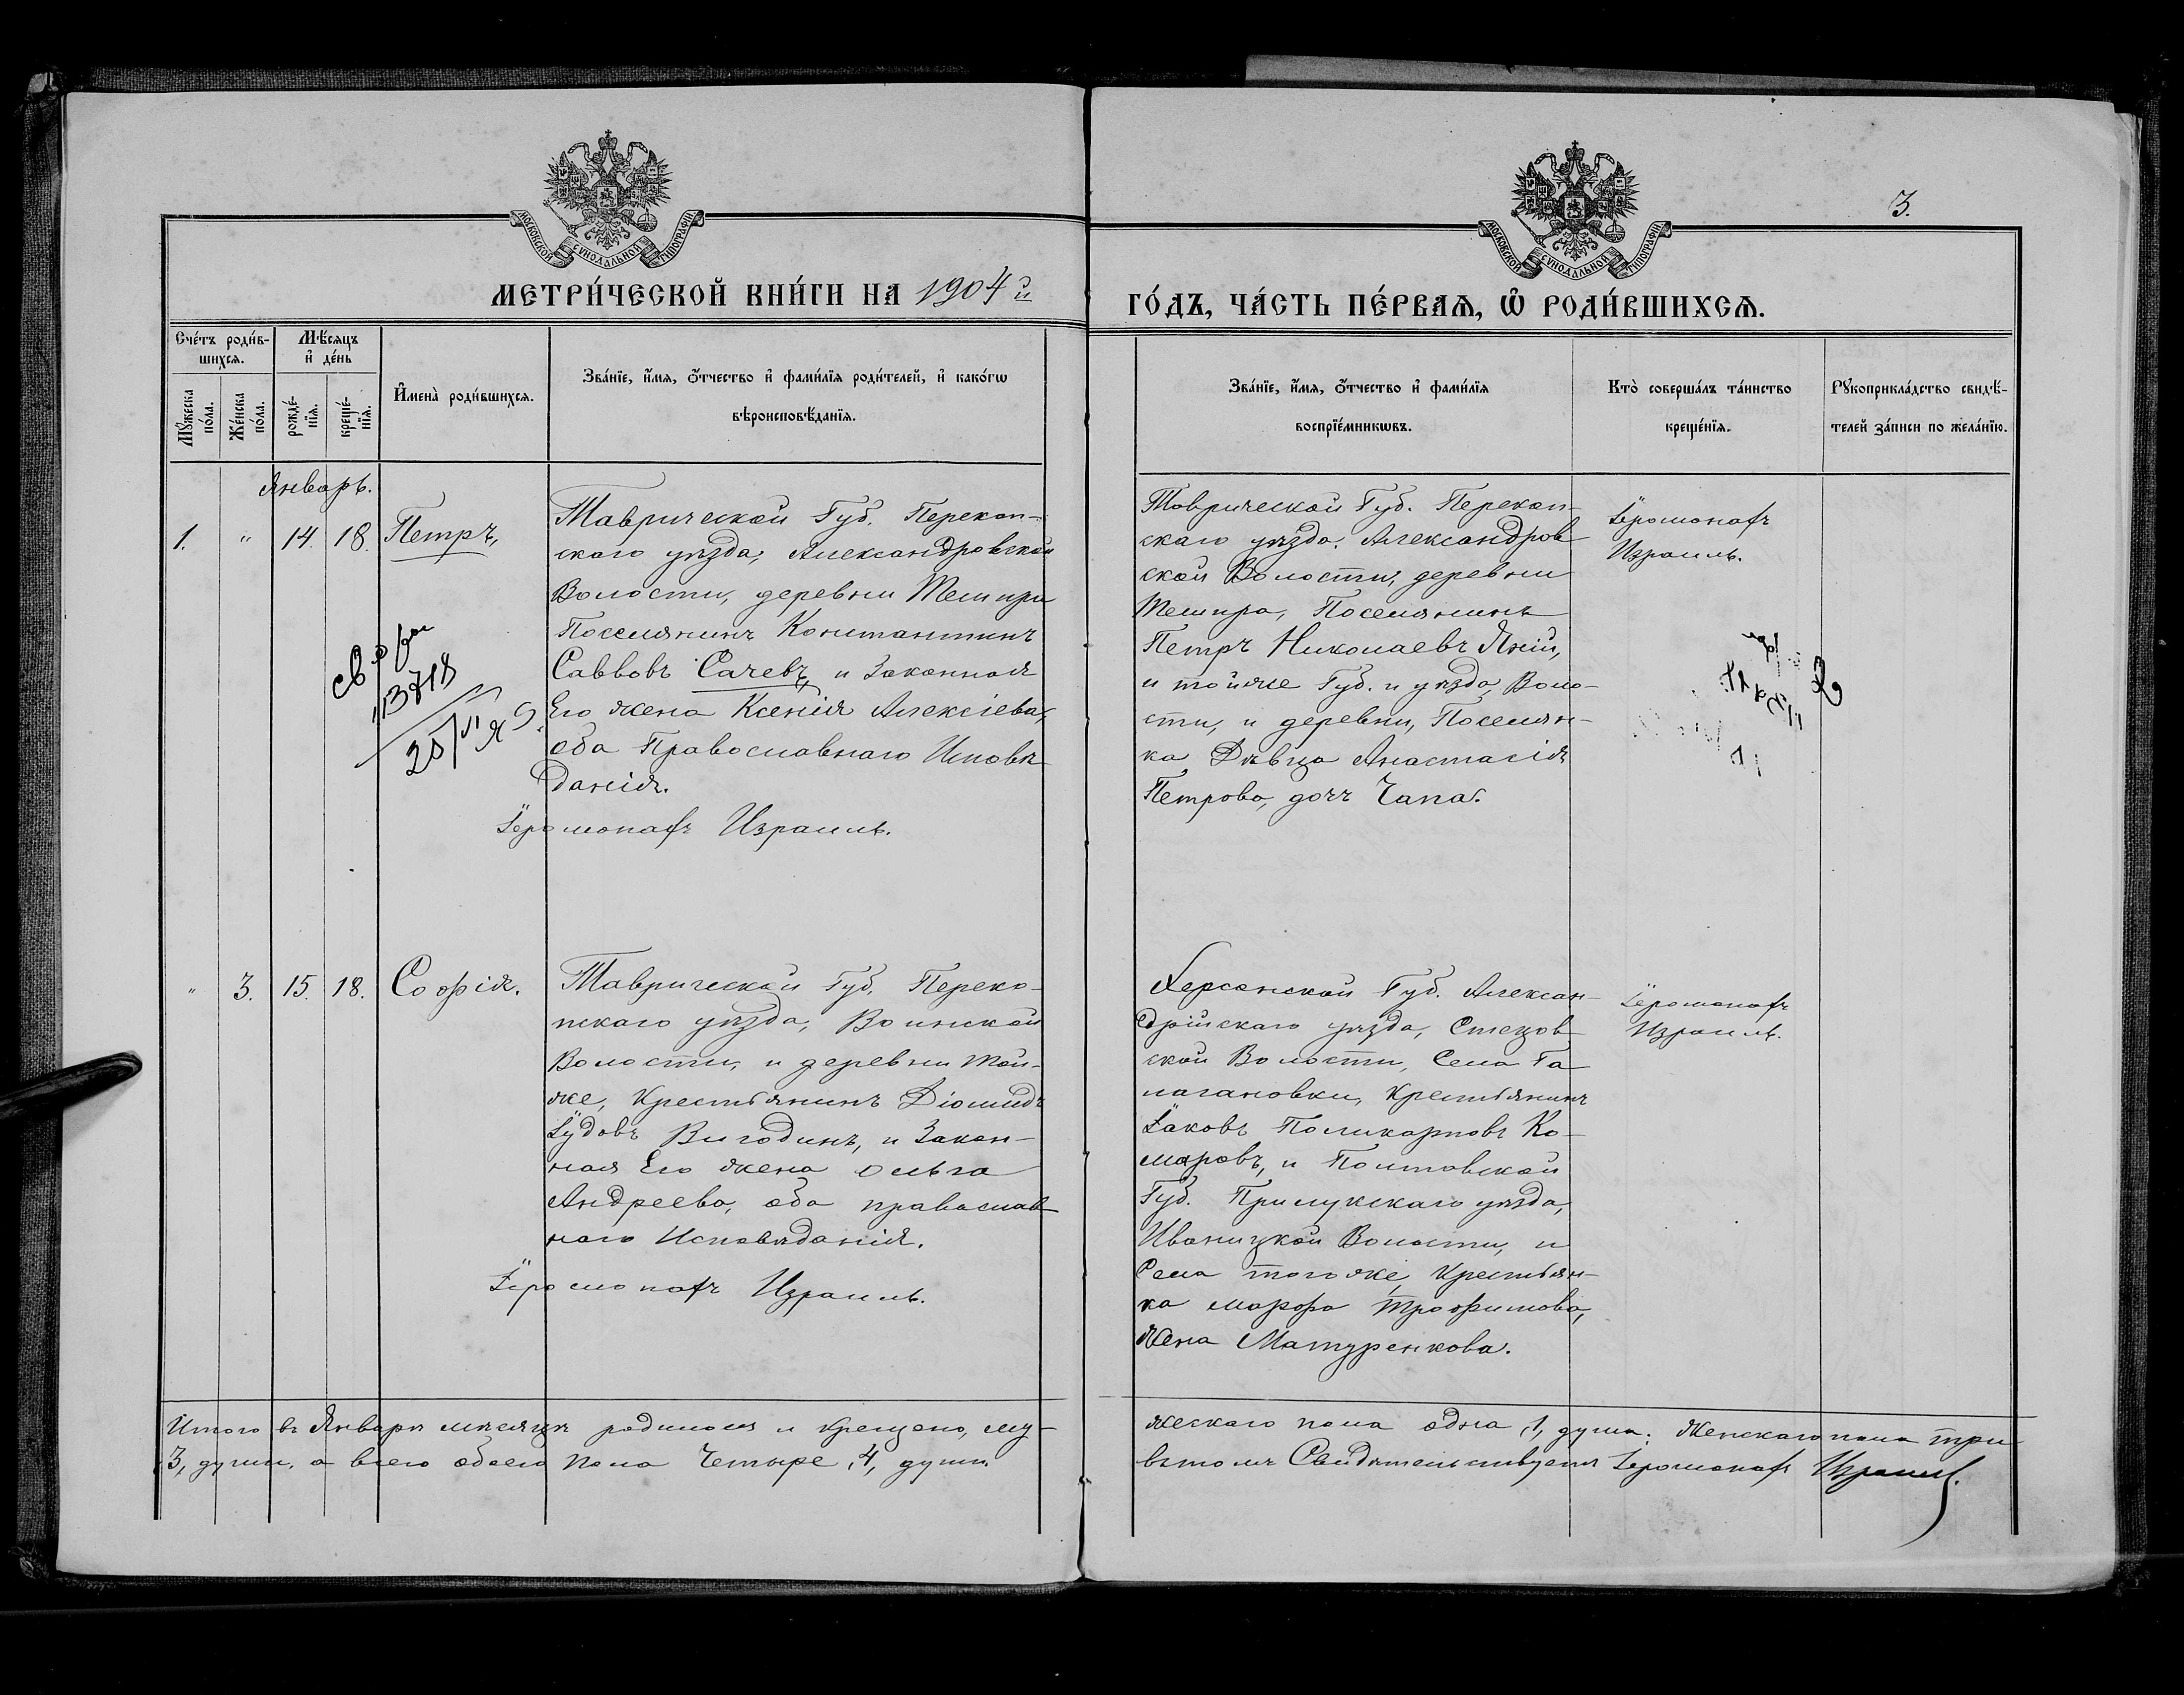 3.
МОСКОВСКОЙ СѴНОДАЛЬНОЙ ТИПОГРАФІИ
МОСКОВСКОЙ СѴНОДАЛЬНОЙ ТИПОГРАФІИ
МЕТРИ́ЧЕСКОЙ КНИ́ГИ НА 1904 й
ГО́ДЪ, ЧА́СТЬ ПЕ́РВАѦ, Ѡ҆ РОДИ́ВШИХСѦ.
Сче́тъ роди́в-
шихсѧ.
Мѣ́сѧцъ
и҆ де́нь
Мꙋ́жеска
по́ла.
Же́нска
по́ла.
рожде́-
нїѧ.
креще́-
нїѧ.
И҆мена̀ роди́вшихсѧ.
Зва́нїе, и҆́мѧ, ѻ҆́тчество и҆ фами́лїѧ роди́телей, и҆ како́гѡ
вѣроисповѣ́данїѧ.
Зва́нїе, и҆́мѧ, ѻ҆́тчество и҆ фами́лїѧ
воспрїе́мникѡвъ.
Кто̀ соверша́лъ та́инство
креще́нїѧ.
Рꙋкоприкла́дство свидѣ́-
телей за́писи по жела́нїю.
Январь.
1. " 14. 18. Петръ,
Таврической Губ. Перекоп-
скаго уѣзда, Александровской
Волости, деревни Тешири
Поселянинъ Константинъ
Саввовъ Сачевъ, и Законная
Его жена Ксенія Алексіева,
оба Православнаго Исповѣ-
данія.
Іеромонахъ Израиль.
13718
Таврической Губ. Перекоп-
скаго уѣзда. Александров
ской Волости, деревни
Тешира, Поселянинъ
Петръ Николаевъ Яній,
и тойже Губ. и уѣзда, Воло-
сти, и деревни, Поселян-
ка Дѣвица Анастасія
Петрова, дочъ Чапа.
Іеромонахъ
Израиль.
" 3. 15. 18. Софія.
Таврической Губ. Переко-
пскаго уѣзда, Воинской
Волости, и деревни той-
же, Крестьянинъ Діомидъ
Іудовъ Вигодинъ, и Закон-
ная Его жена Ольга
Андреева, оба православ
наго Исповѣданія.
Іеромонахъ Израиль.
Херсонской Губ. Алексан-
дрійскаго уѣзда, Стецов
ской Волости, Села Га
лагановки, Крестьянинъ
Іаковъ Поликарповъ Ко-
маровъ, и Полтавской
Губ. Прилукскаго уѣзда,
Иваницкой Волости, и
Села тогоже, Крестьян-
ка марфа Трофимова,
жена Матуренкова.
Іеромонахъ
Израиль.
Итого въ Январѣ мѣсяцѣ родилося и крещено, му-
жескаго пола одна ,1, душа. Женскаго пола три
3, души. а всего обоего пола Четыре ,4, души.
вътомъ Свидѣтельствуетъ Іеромонахъ Израиль.